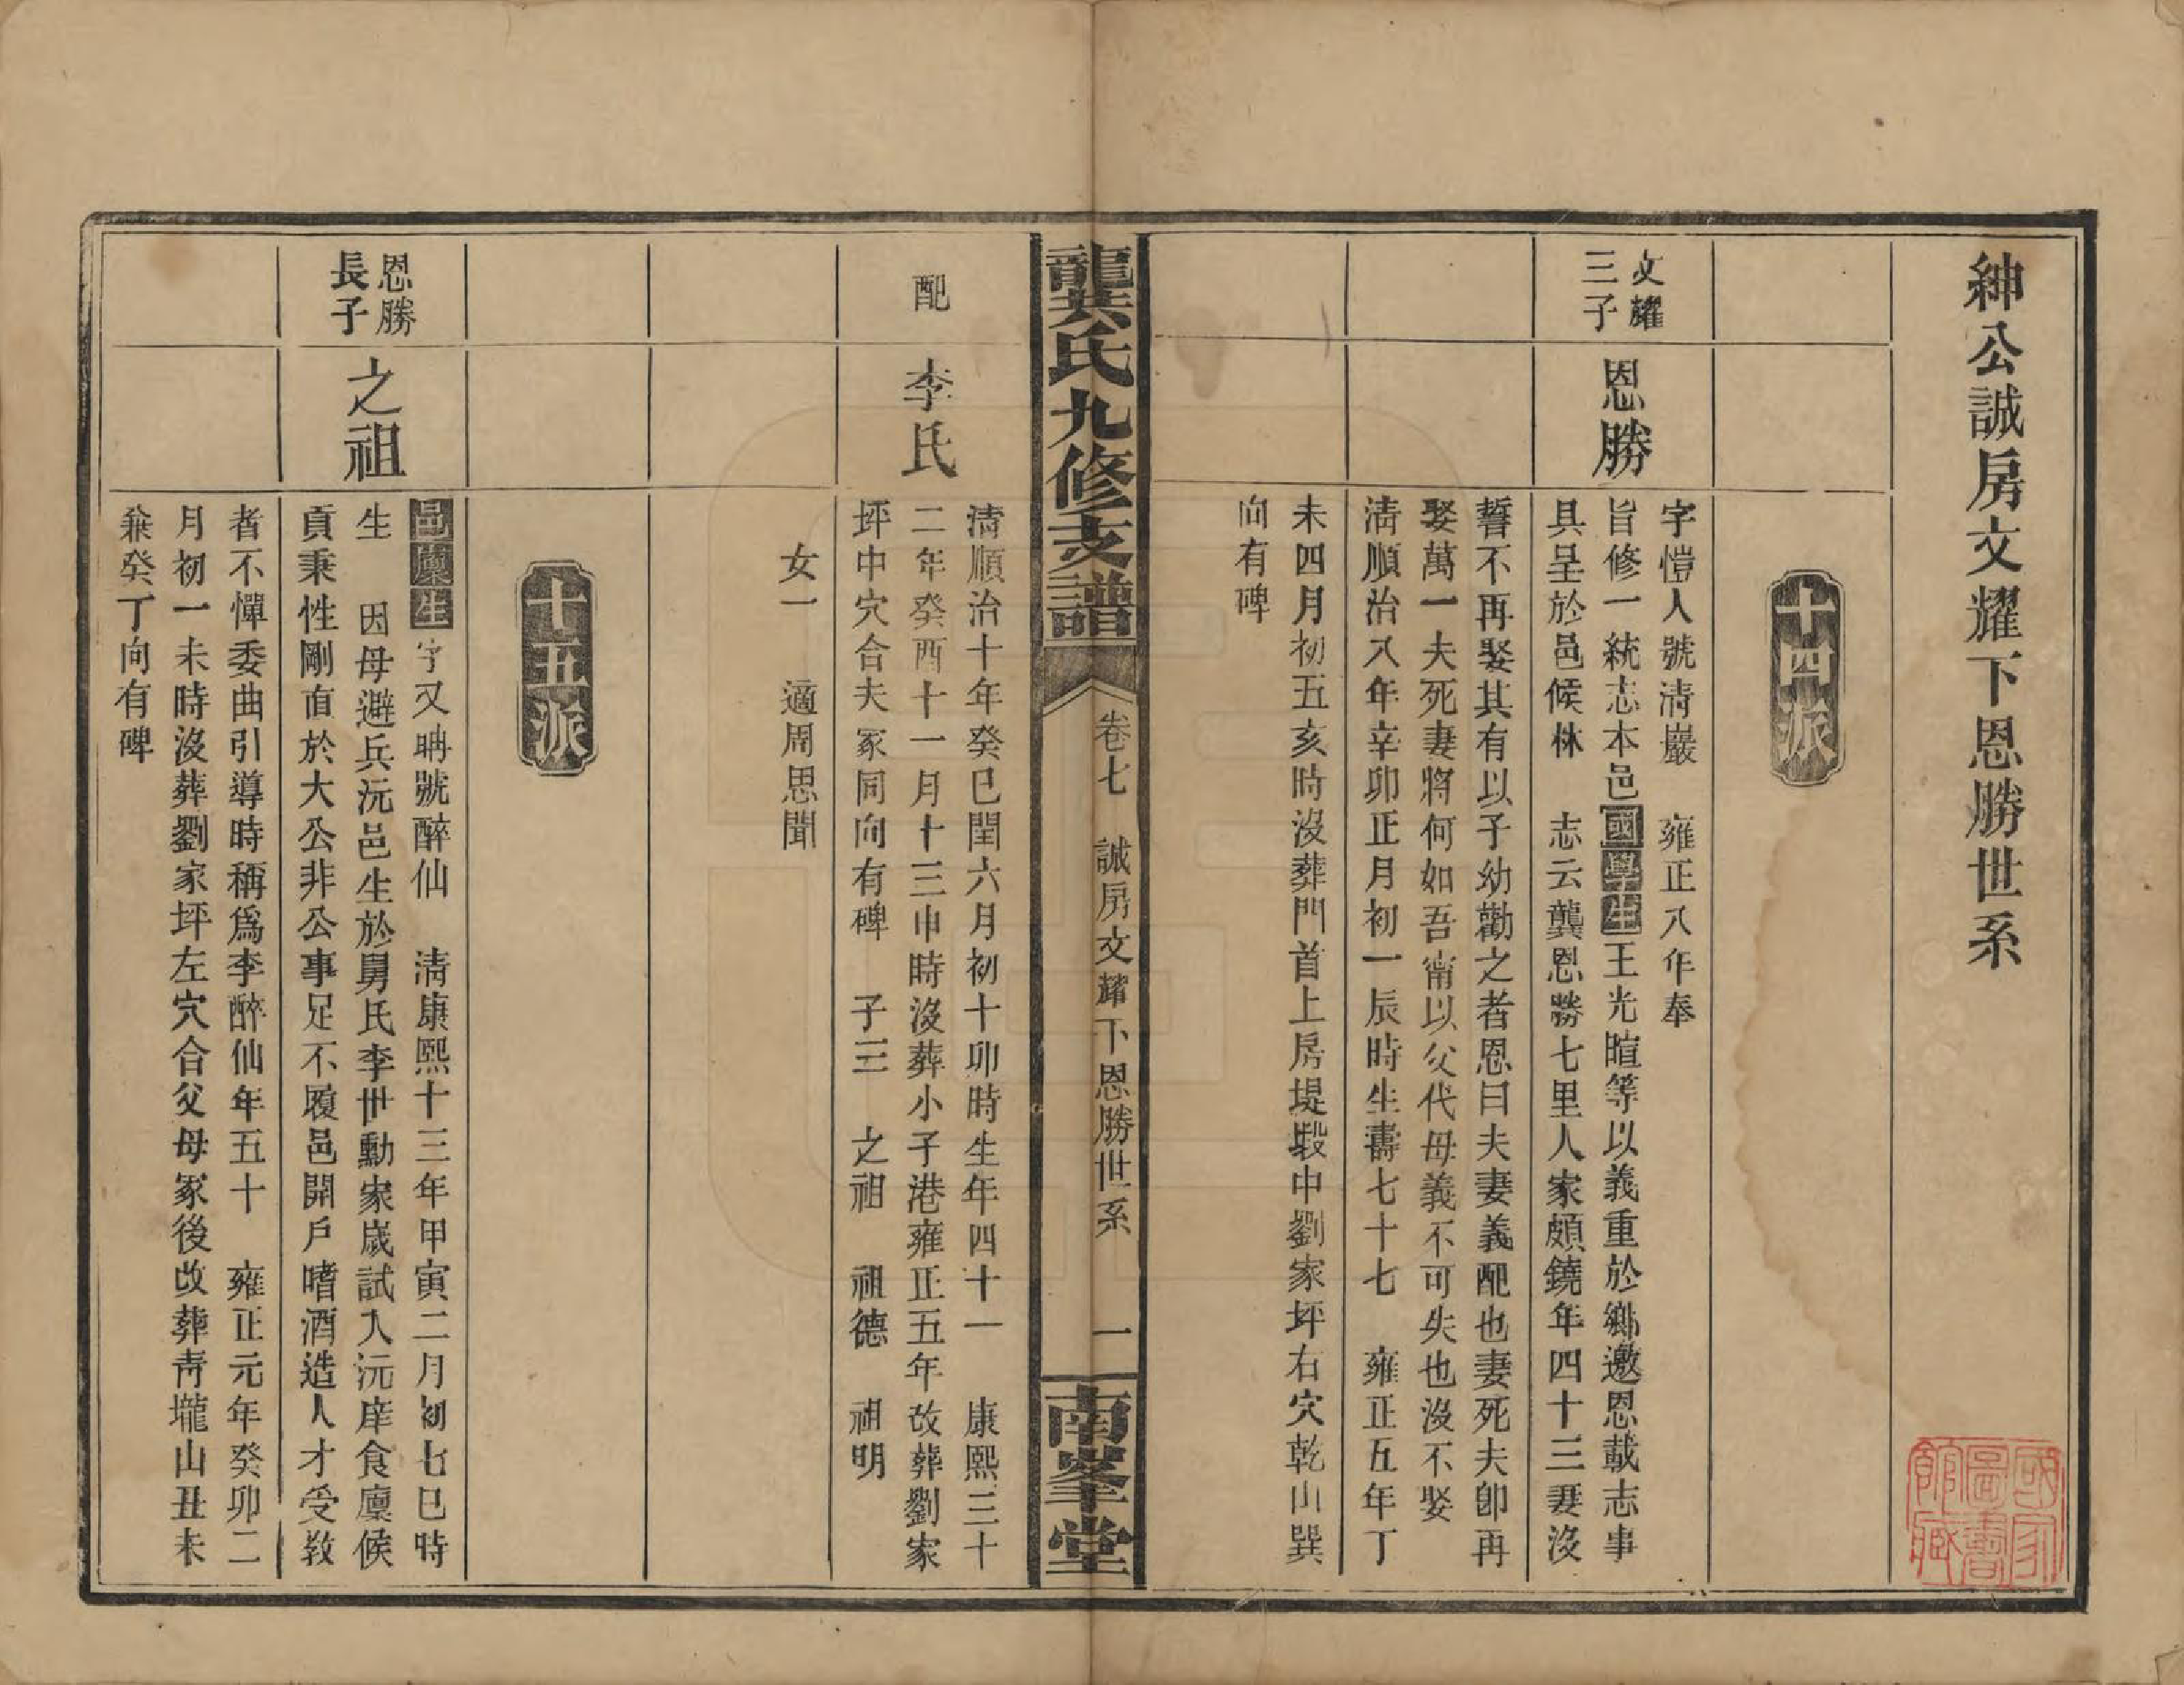 紳公誠房文耀下恩勝世系
十四派
文耀
三子
恩勝
字愷人號清巖　雍正八年奉
旨修一統志本邑國學生王光暄等以義重於鄉邀恩載志事
具呈於邑候林　志云龔恩勝七里人家頗饒年四十三妻沒
誓不再娶其有以子幼勸之者恩曰夫妻義配也妻死夫卽再
娶萬一夫死妻將何如吾甯以父代母義不可失也沒不娶
清順治八年辛卯正月初一辰時生壽七十七　雍正五年丁
未四月初五亥時沒葬門首上房堤塅中劉家坪右穴乾山巽
向有碑
龔氏九修支譜
卷七　誠房文耀下恩勝世系　一
南峯堂
配
李氏
清順治十年癸巳閏六月初十卯時生年四十一　康熙三十
二年癸酉十一月十三申時沒葬小子港雍正五年改葬劉家
坪中穴合夫冢同向有碑　子三　之祖　祖德　祖明
女一　適周思聞
十五派
恩勝
長子
之祖
邑廩生字又聃號醉仙　清康熙十三年甲寅二月初七巳時
生　因母避兵沅邑生於舅氏李世勳家歲試入沅庠食廩候
貢秉性剛直於大公非公事足不履邑開戶嗜酒造人才受教
者不憚委曲引導時稱爲李醉仙年五十　雍正元年癸卯二
月初一未時沒葬劉家坪左穴合父母冢後改葬靑壠山丑未
兼癸丁向有碑
國家圖書館藏